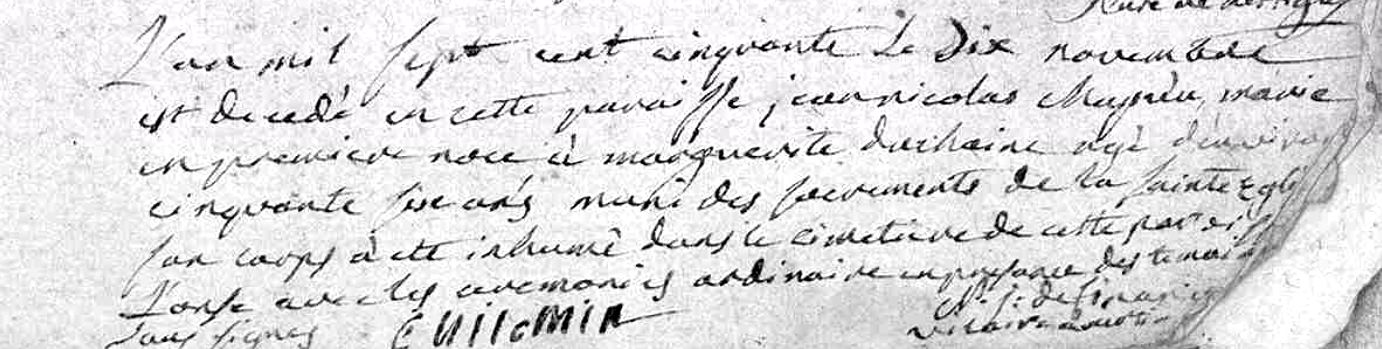 L'an mil sept cent cinquante le dix novembre
est decedé en cette paroisse jean nicolas marié
en premiere noce à marguerite duchaine agé d'environ
cinquante six ans muni des sacrements de la sainte Egli
son corps a été inhumé dans le cimetiere de cette parois
avec les ceremonies ordinaire en presence des temoi
sous signes Cuilemin